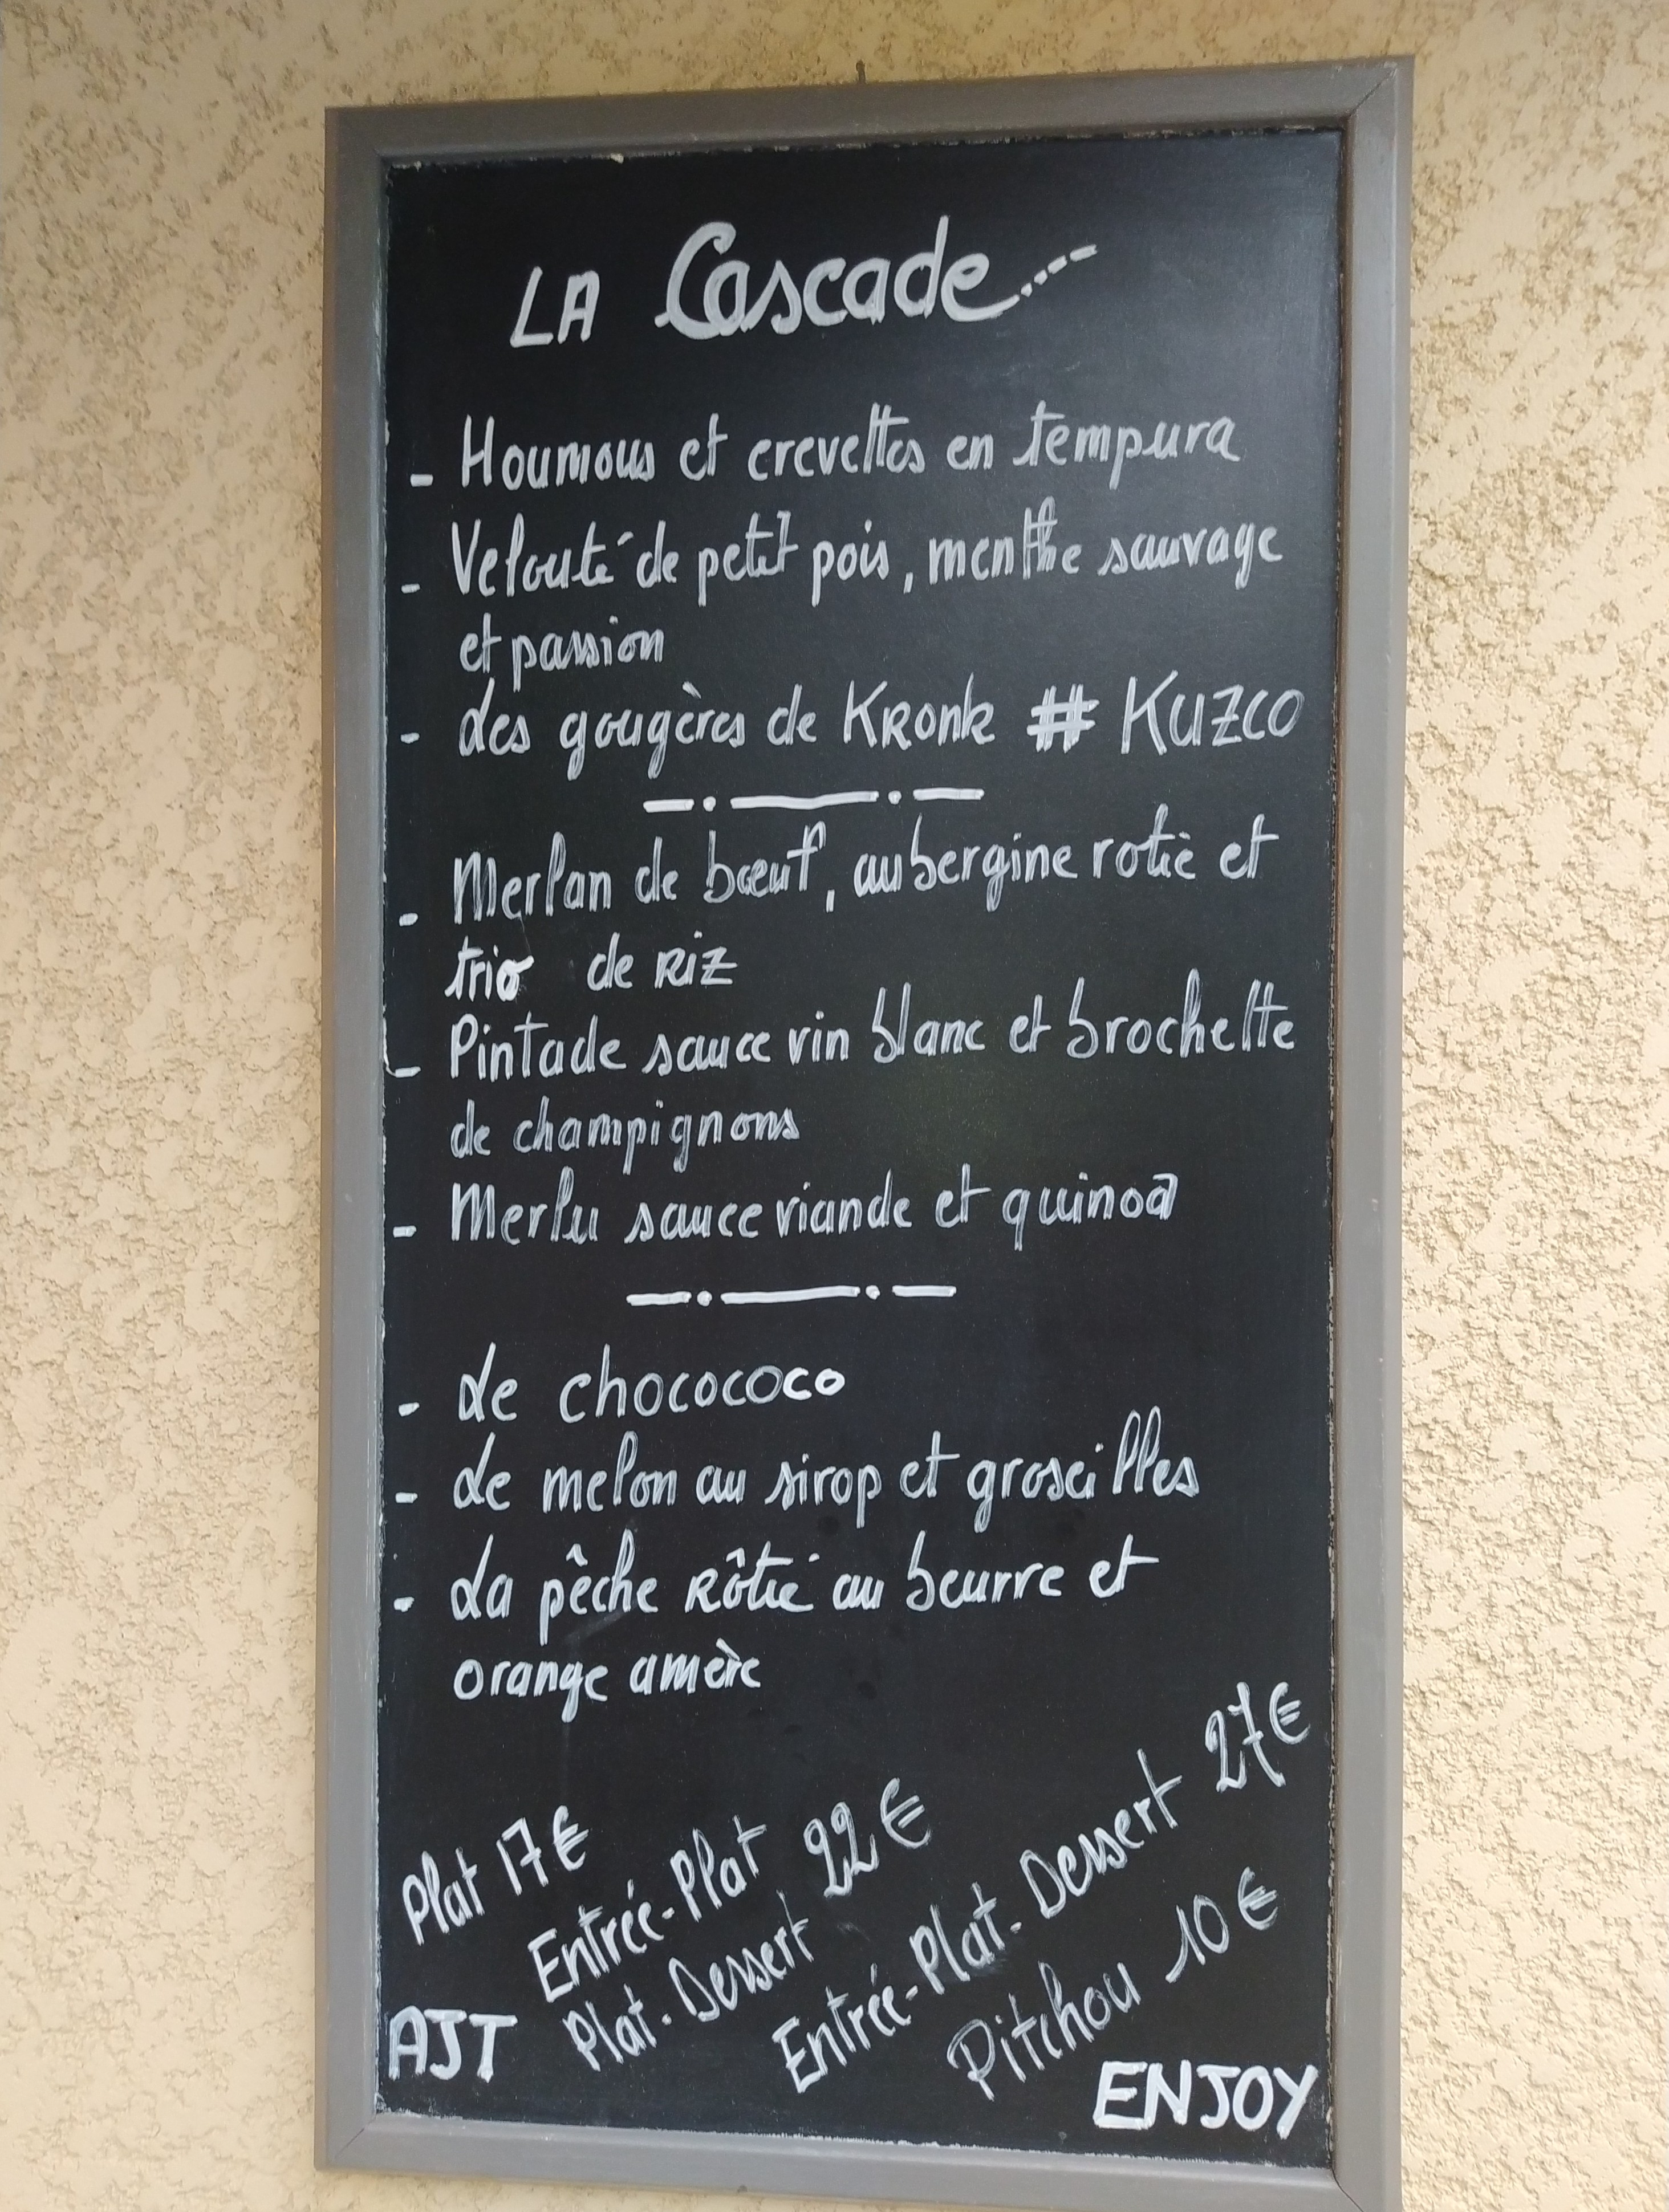 LA Cascade
- Houmous et crevettes en tempura
- Velouté de petit pois, menthe sauvage
et passion
- Les gougères de Kronk # KUZCO
- Merlan de bœuf, aubergine rotie et
trio de RIZ
- Pintade sauce vin blanc et brochette
de champignons
- Merlu sauce viande et quinoa
- Le chocococo
- Le melon au sirop et groseilles
- La pêche Rôtie au beurre et
orange amère
Plat 17€
Entrée-Plat 22€
Plat-Dessert
Entrée-Plat-Dessert 27€
Pitchou 10€
AJT
ENJOY